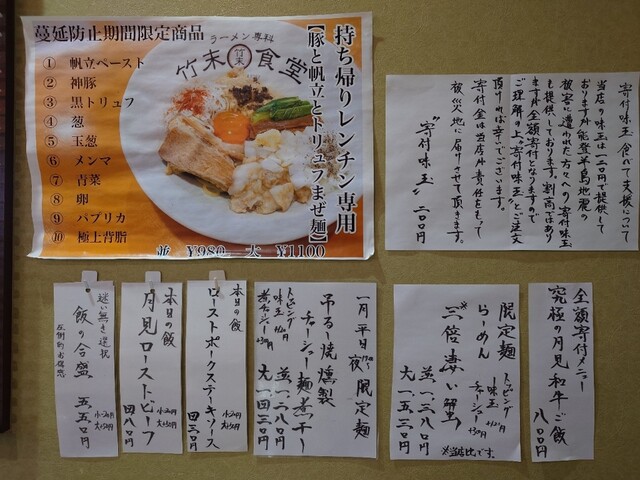 蔓延防止期間限定商品
① 帆立ペースト
② 神豚
③ 黒トリュフ
④ 葱
⑤ 玉葱
⑥ メンマ
⑦ 青菜
⑧ 卵
⑨ パプリカ
⑩ 極上背脂
ラーメン専科
竹末食堂
持ち帰りレンチン専用
【豚と帆立とトリュフまぜ麺】
並 ¥980 大 ¥1100
寄付味玉食べて支援について
当店の味玉は一二〇円で提供して
おりますが能登半島地震の
被害に遭われた方々への寄付味玉
も提供しております。割高ではあり
ますが全額寄付となりますので
ご理解の上〝寄付味玉〟とご注文
頂ければ幸いでございます。
寄付金は当店が責任をもって
被災地に届けさせて頂きます。
〝寄付味玉〟 二〇〇円
全額寄付メニュー
究極の月見和牛ご飯
八〇〇円
限定麺
トッピング
味玉
チャーシュー
らーめん
並一三八〇円
大一五三〇円
※当店比です。
一月平日夜限定麺
吊るし焼燻製
チャーシュー麺煮干し
トッピング
味玉
煮チャシュー
並一二八〇円
大一四三〇円
本日の飯
ローストポークステーキソース
四三〇円
本日の飯
月見ローストビーフ
四八〇円
迷い無き選択
飯の合盛
圧倒的お得感
五五〇円